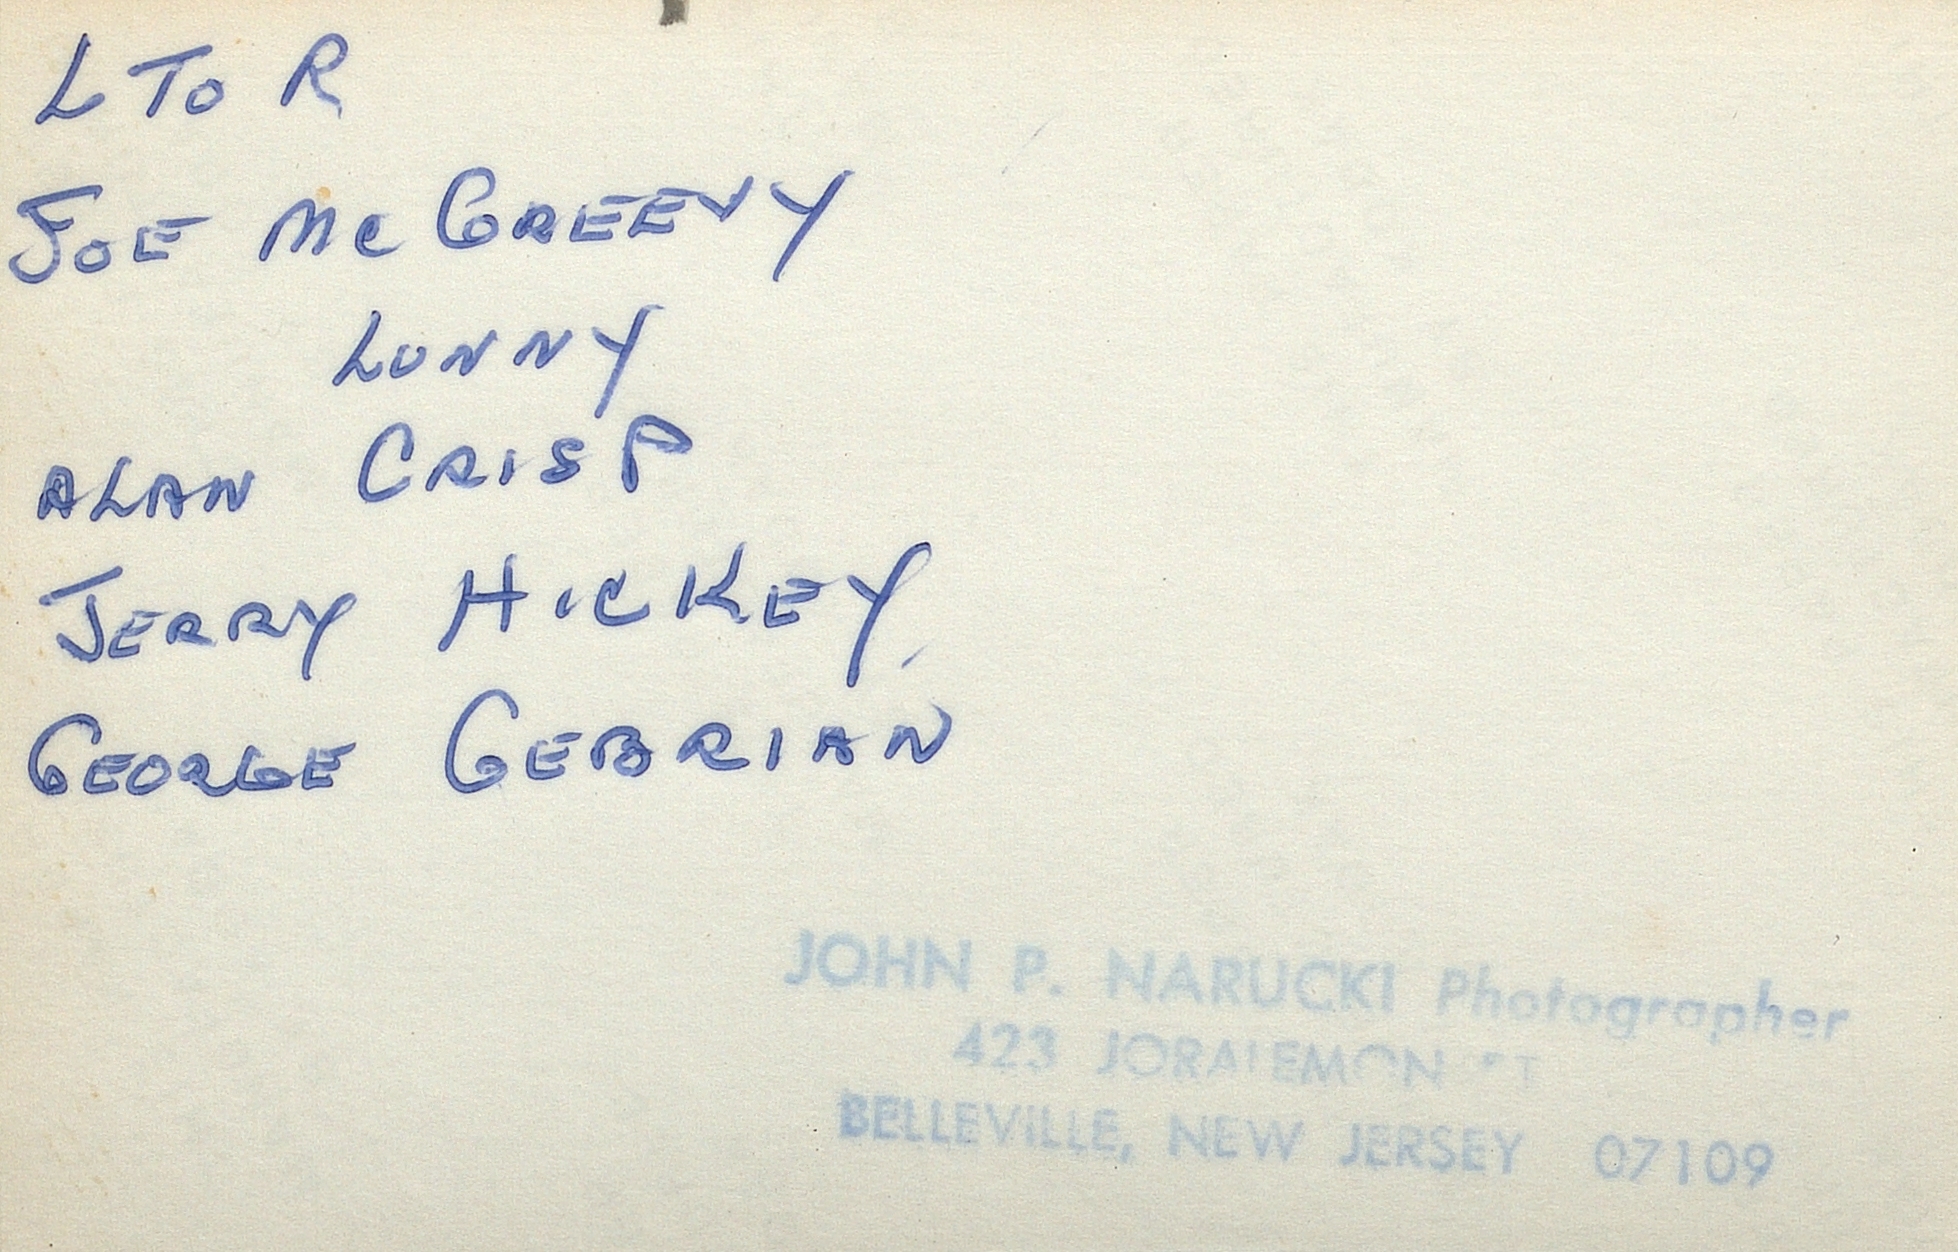 L TO R
JOE McGREEVY
LUNNY
ALAN CRISP
JERRY HICKEY
GEORGE GEBRIAN
JOHN P. NARUCKI Photographer
423 JORALEMON ST
BELLEVILLE, NEW JERSEY 07109